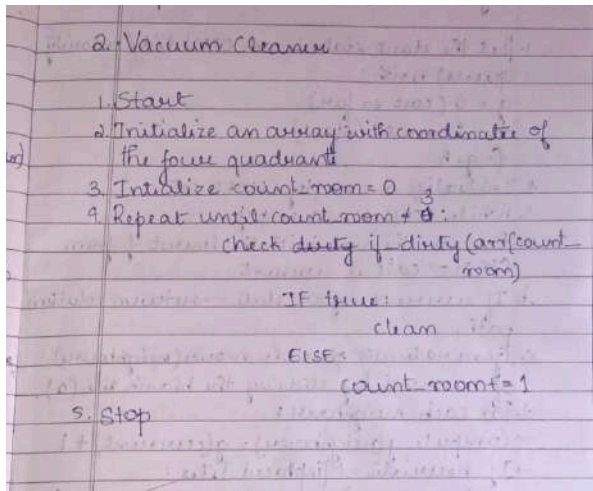 2. Vacuum Cleaner
1. Start
2. Initialize an array with coordinates of
the four quadrants
3. Intialize count_room = 0
4. Repeat until count_room ≠ 3:
check dirty if dirty (arr[count_
room)
IF true:
clean
ELSE:
count_room += 1
5. Stop